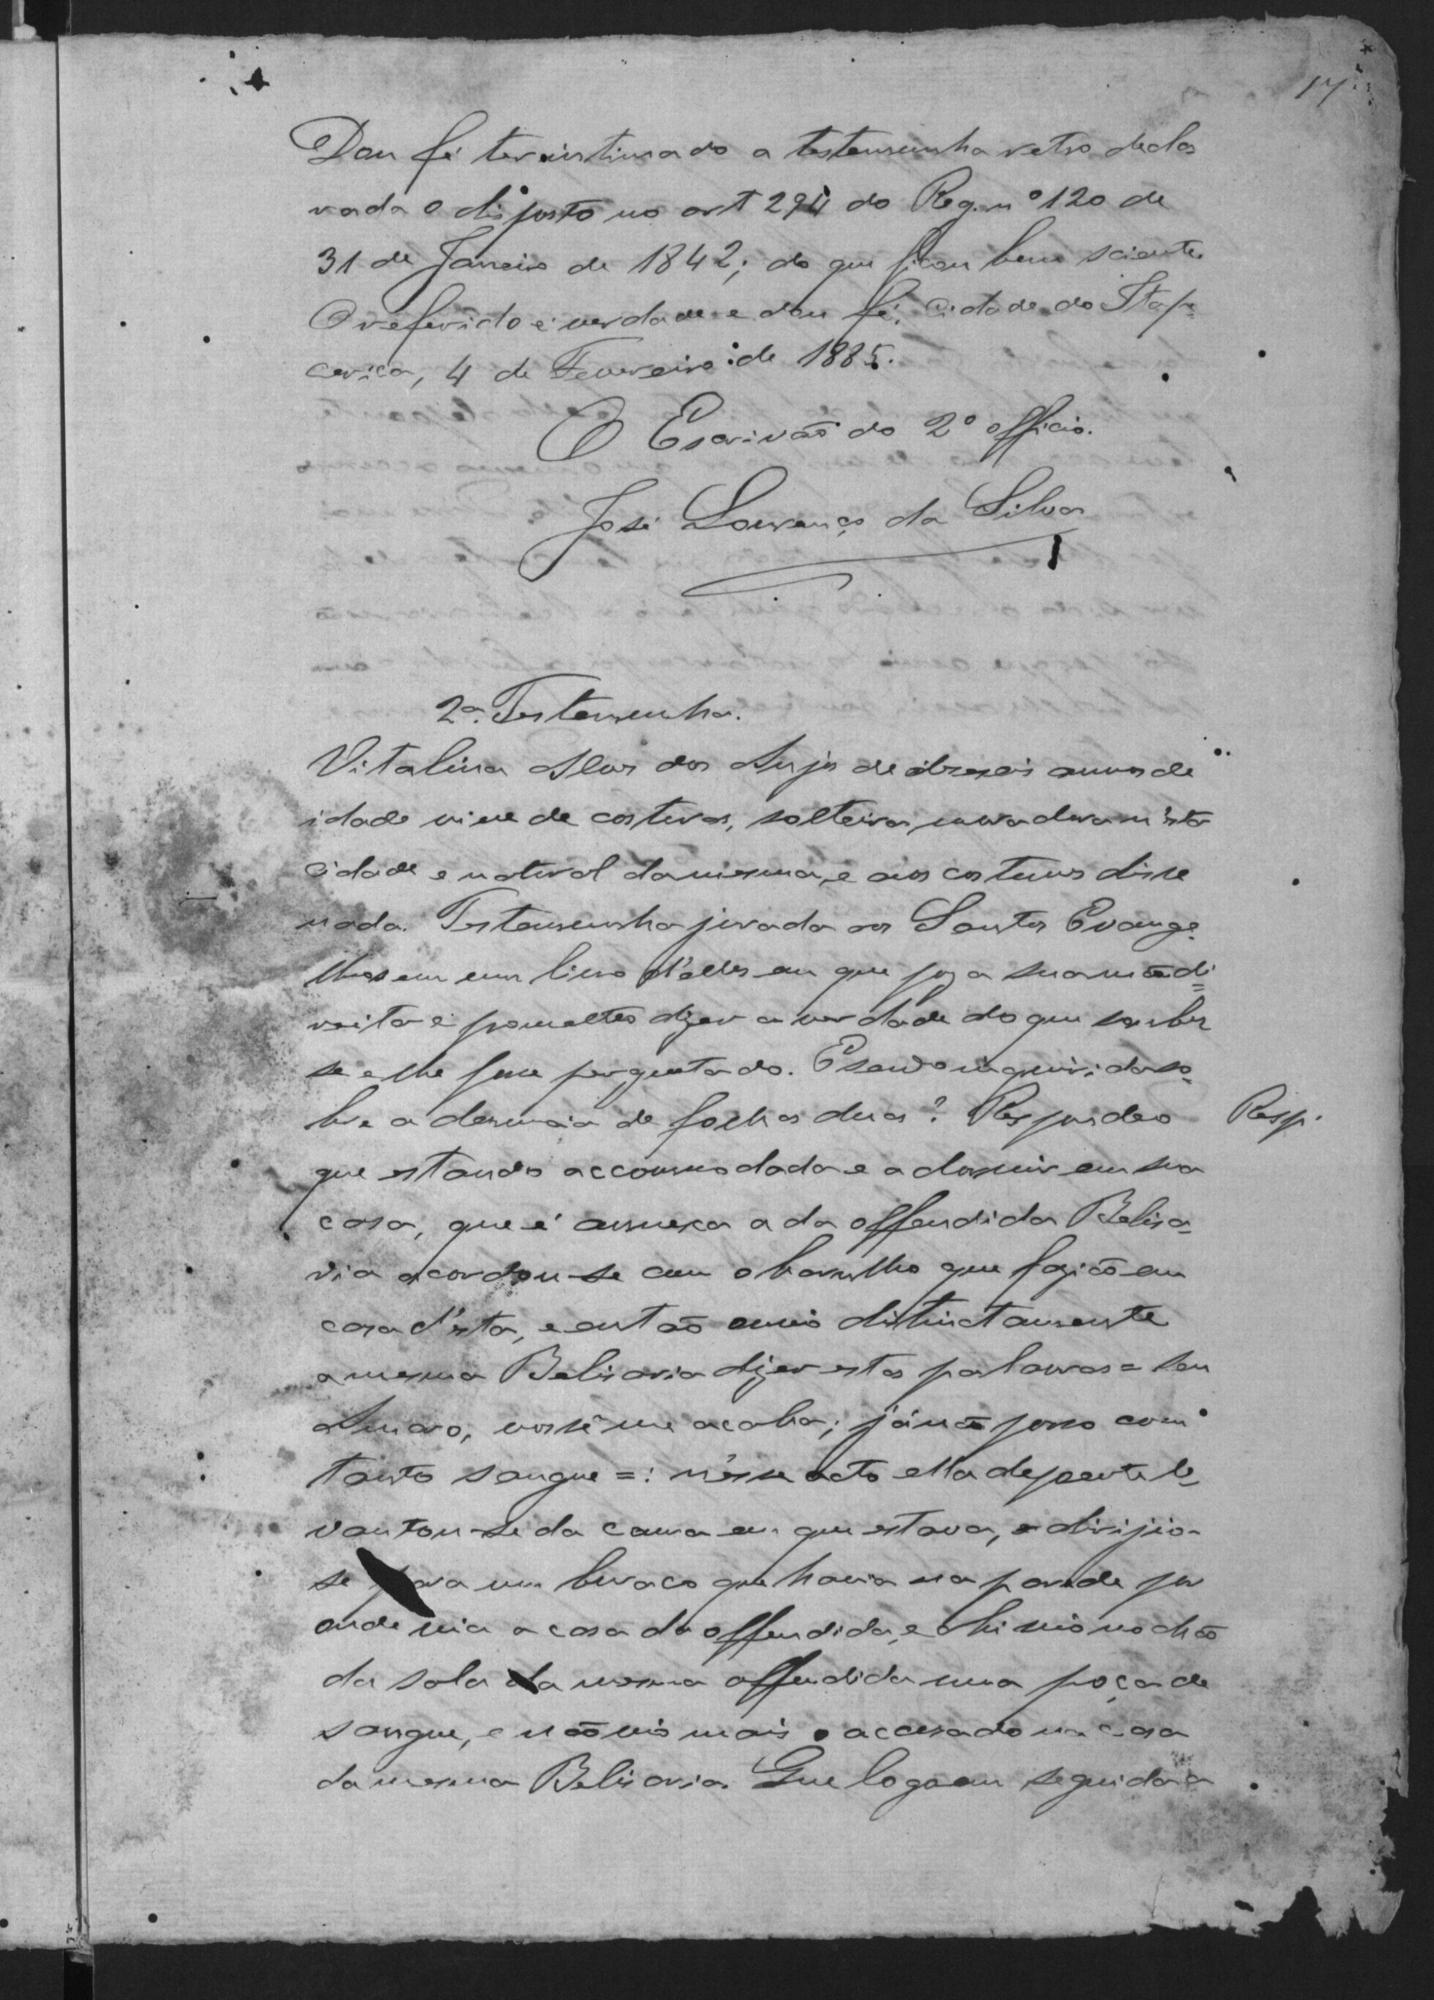 17
Dou fé ter intimado a testemunha retro decla
rada o disposto no art 294 do Reg. nº 120 de
31 de Janeiro de 1842; do que ficou bem sciente.
O referido é verdade e dou fé. Cidade do Itape
cerica, 4 de Fevereiro de 1885.
O Escrivão do 2º officio.
José Lourenço da Silva
2ª Testemunha.
Vitalina Alves dos Anjos de dezeseis annos de
idade vive de costuras, solteira, moradora n'esta
cidade e natural da mesma, e aos costumes disse
nada. Testemunha jurada aos Santos Evange=
lhos em um livro d'elles em que poz a sua mão di=
reita e prometteo dizer a verdade do que soubes
se e lhe fosse perguntado. E sendo inquirida so=
bre a denuncia de folhas duas? Respondeo
Resp.
que estando accommodada e a dormir em sua
casa, que é annexa a da offendida Belisa=
ria acordou-se com o barulho que fazião em
casa d'esta, e então ouvio distinctamente
a mesma Belisaria dizer estas palavras = seu
Amaro, vossê me acaba; já não posso com
tanto sangue =: n'esse acto ella depoente le=
vantou-se da cama em que estava, e dirijio-
se para um buraco que havia na parede por
onde via a casa da offendida, e ahi vio no chão
da sala da mesma offendida uma poça de
sangue, e não vio mais o accusado na casa
da mesma Belisaria. Que logo em seguida a